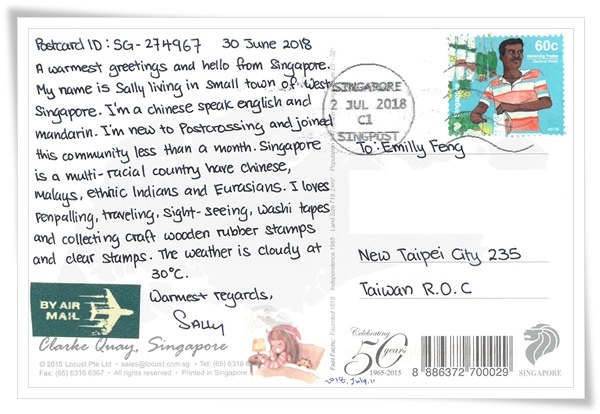 Postcard ID : SG-274967 30 June 2018
A warmest greetings and hello from Singapore.
My name is Sally living in small town of West
Singapore. I'm a chinese speak english and
mandarin. I'm new to Postcrossing and joined
this community less than a month. Singapore
is a multi-racial country have chinese,
malays, ethnic Indians and Eurasians. I loves
penpalling, traveling, sight-seeing, washi tapes
and collecting craft wooden rubber stamps
and clear stamps. The weather is cloudy at
30°C.
Warmest regards,
SALLY
BY AIR
MAIL
Clarke Quay, Singapore
© 2015 Locust Pte Ltd • sales@locust.com.sg • Tel: (65) 6316 6
Fax: (65) 6316 6367 • All rights reserved • Printed in Singapore
Fast Facts: Founded 1819 Independence 1965 Land Size 719.1
Celebrating
50 years
1965-2015
2018. July. 11
60c
Singapore
SINGAPORE
2 JUL 2018
C1
SINGPOST
To: Emilly Feng
New Taipei City 235
Taiwan R.O.C
8 886372 700029
SINGAPORE